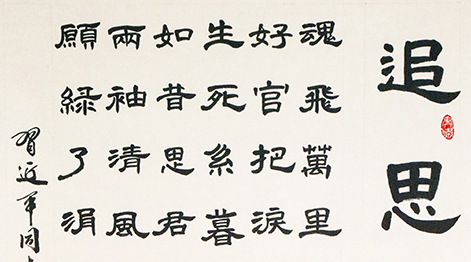 追思
魂飛萬里
好官把淚
生死系暮
如昔思君
兩袖清風
願綠了涓
習近平同